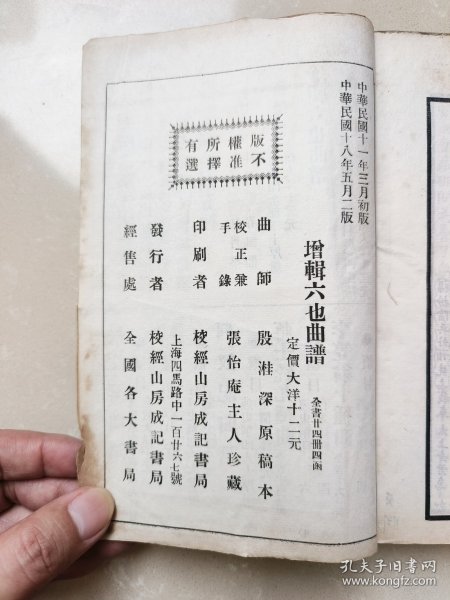 中華民國十一年三月初版
中華民國十八年五月二版
增輯六也曲譜
全書廿四冊四函
定價大洋十二元
版權所有
不准擇選
曲師 殷溎深原稿本
校正兼手錄 張怡庵主人珍藏
印刷者 校經山房成記書局
上海四馬路中一百廿六七號
發行者 校經山房成記書局
經售處 全國各大書局
孔夫子旧书网
www.kongfz.com